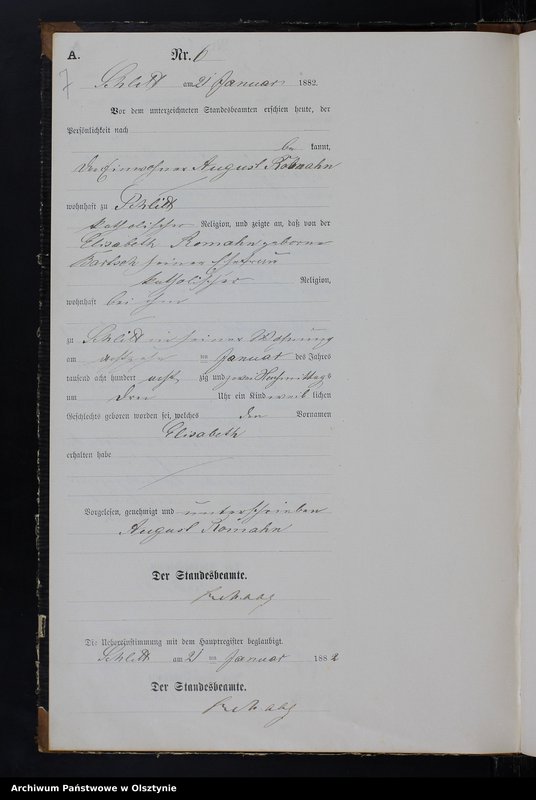 A.
Nr. 6
7
Schlitt am 21 Januar 1882.
Vor dem unterzeichneten Standesbeamten erschien heute, der
Persönlichkeit nach
be kannt,
der Einwohner August Romahn
wohnhaft zu Schlitt
katholischer Religion, und zeigte an, daß von der
Elisabeth Romahn geborne
Bartsch seiner Ehefrau
katholischer Religion,
wohnhaft bei ihm
zu Schlitt in seiner Wohnung
am achtzehn ten Januar des Jahres
tausend acht hundert acht zig und zwei Nachmittags
um drei Uhr ein Kind weib lichen
Geschlechts geboren worden sei, welches den Vornamen
Elisabeth
erhalten habe
Vorgelesen, genehmigt und unterschrieben
August Romahn
Der Standesbeamte.
Die Uebereinstimmung mit dem Hauptregister beglaubigt.
Schlitt am 21 ten Januar 1882
Der Standesbeamte.
Archiwum Państwowe w Olsztynie